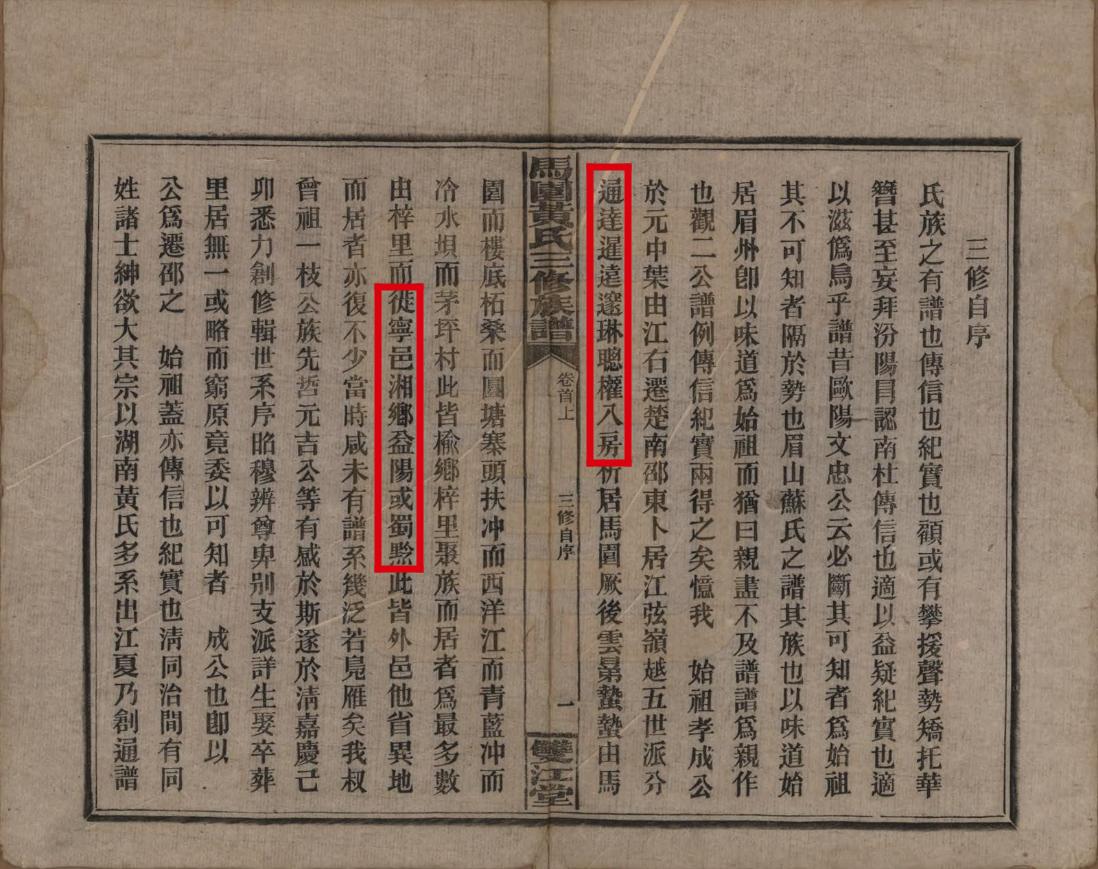 三修自序
氏族之有譜也傳信也紀實也顧或有攀援聲勢矯托華
簪甚至妄拜汾陽冒認南杜傳信也適以益疑紀實也適
以滋僞烏乎譜昔歐陽文忠公云必斷其可知者爲始祖
其不可知者隔於勢也眉山蘇氏之譜其族也以味道始
居眉州卽以味道爲始祖而猶曰親盡不及譜譜爲親作
也觀二公譜例傳信紀實兩得之矣憶我 始祖孝成公
於元中葉由江右遷楚南邵東卜居江弦嶺越五世派分
通達暹遠邃琳聰權八房析居馬圓厥後雲昴蟄蟄由馬
馬圓黃氏三修族譜 卷首上 三修自序 一 雙江堂
圓而樓底柘桑而圓塘寨頭扶冲而西洋江而青藍冲而
冷水垻而茅坪村此皆楡鄉梓里聚族而居者爲最多數
由梓里而徙寧邑湘鄉益陽或蜀黔此皆外邑他省異地
而居者亦復不少當時咸未有譜系幾泛若鳧雁矣我叔
曾祖一枝公族先哲元吉公等有感於斯遂於淸嘉慶己
卯悉力創修輯世系序昭穆辨尊卑別支派詳生娶卒葬
里居無一或略而窮原竟委以可知者 成公也卽以
公爲遷邵之 始祖蓋亦傳信也紀實也淸同治間有同
姓諸士紳欲大其宗以湖南黃氏多系出江夏乃創通譜